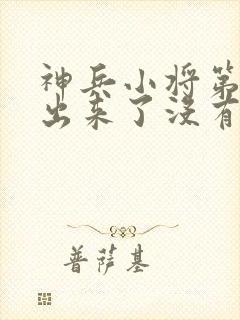 神兵小将第
出来了没有
普萨基